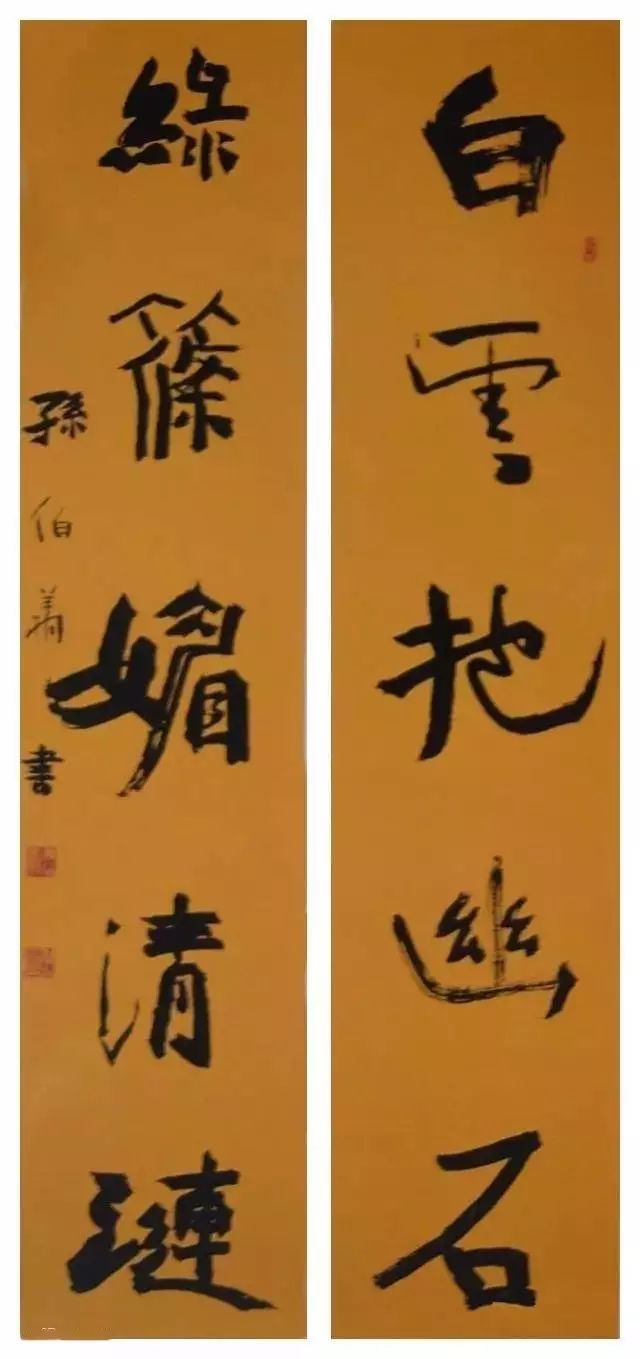 白雲抱幽石
綠篠媚清璉
孫伯翔書